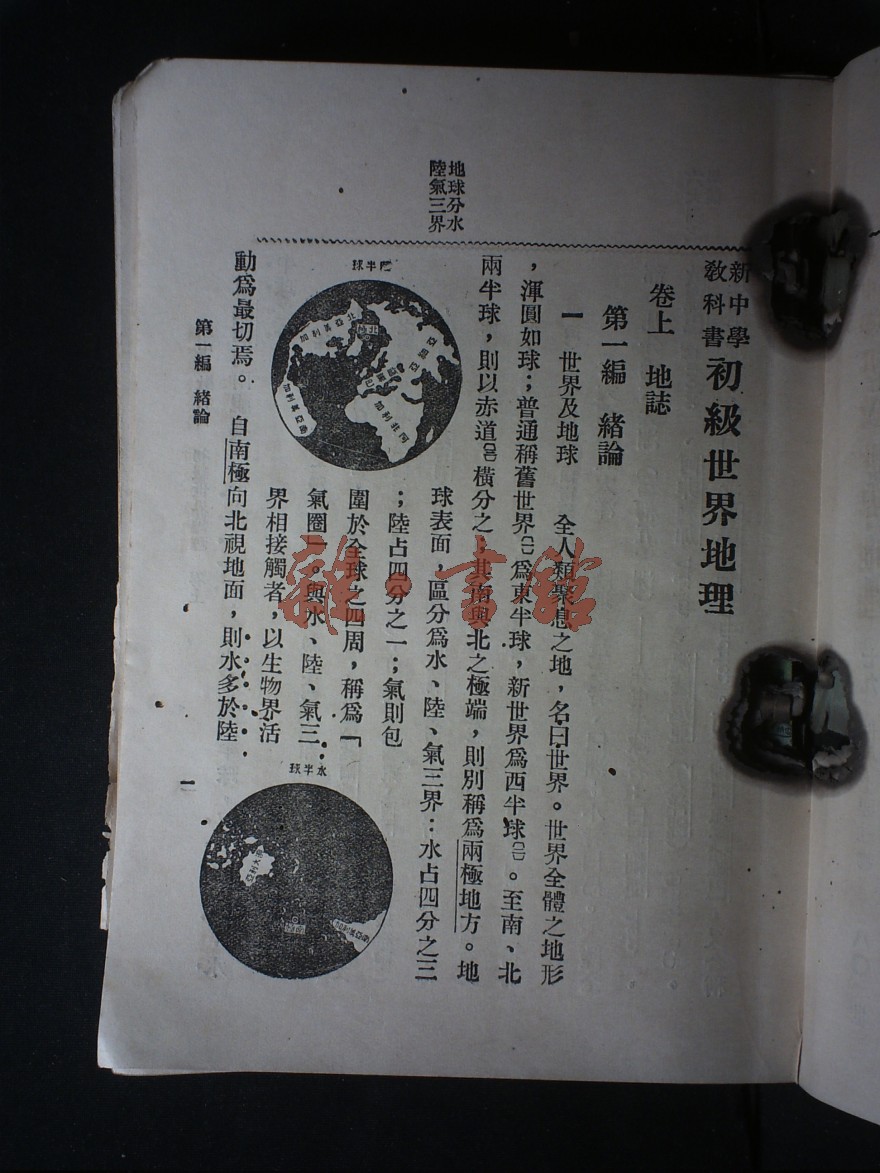 地球分水
陸氣三界
新中學
教科書
初級世界地理
卷上　地誌
第一編　緒論
一　世界及地球　全人類聚息之地，名曰世界。世界全體之地形
，渾圓如球；普通稱舊世界㈠爲東半球，新世界爲西半球㈡。至南、北
兩半球，則以赤道㈢橫分之，其南與北之極端，則別稱爲兩極地方。地
球表面，區分爲水、陸、氣三界：水占四分之三
；陸占四分之一；氣則包
圍於全球之四周，稱爲「
氣圈」。與水、陸、氣三
界相接觸者，以生物界活
動爲最切焉。　自南極向北視地面，則水多於陸
陸半球
北亞美利加
北極
歐羅巴
亞細亞
阿非利加
南亞美利加
水半球
南極
南亞美利加
第一編　緒論
一
雜·書館